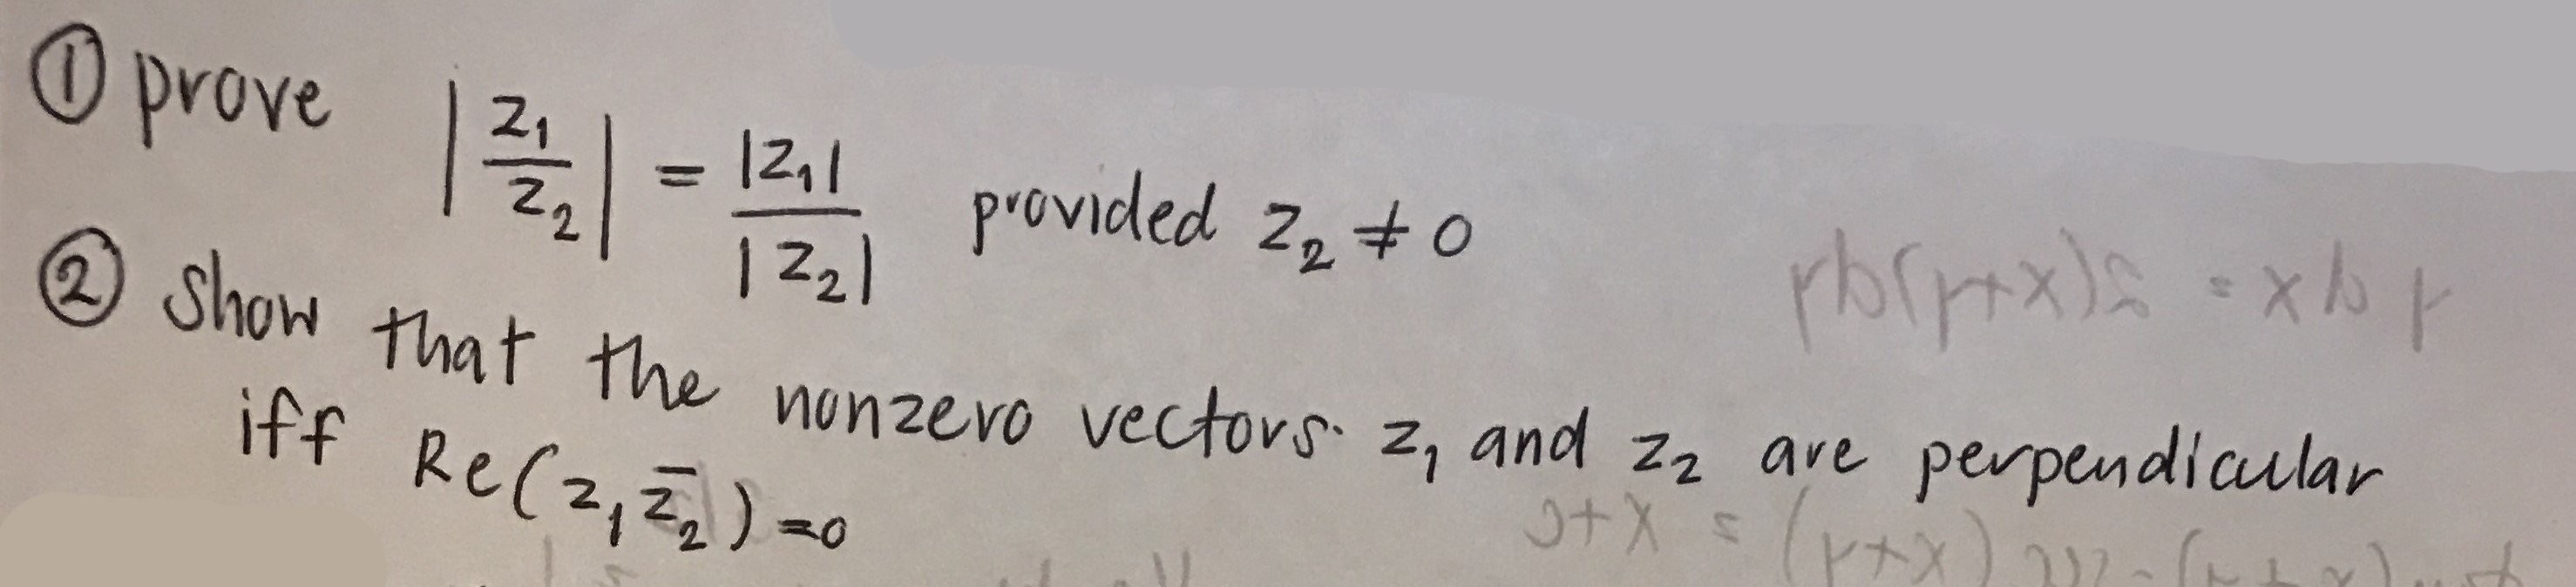 ① prove |z₁/z₂| = |z₁|/|z₂| provided z₂ ≠ 0
② show that the nonzero vectors. z₁ and z₂ are perpendicular
iff Re(z₁z̄₂) = 0
y dx = 2(x+y)dy